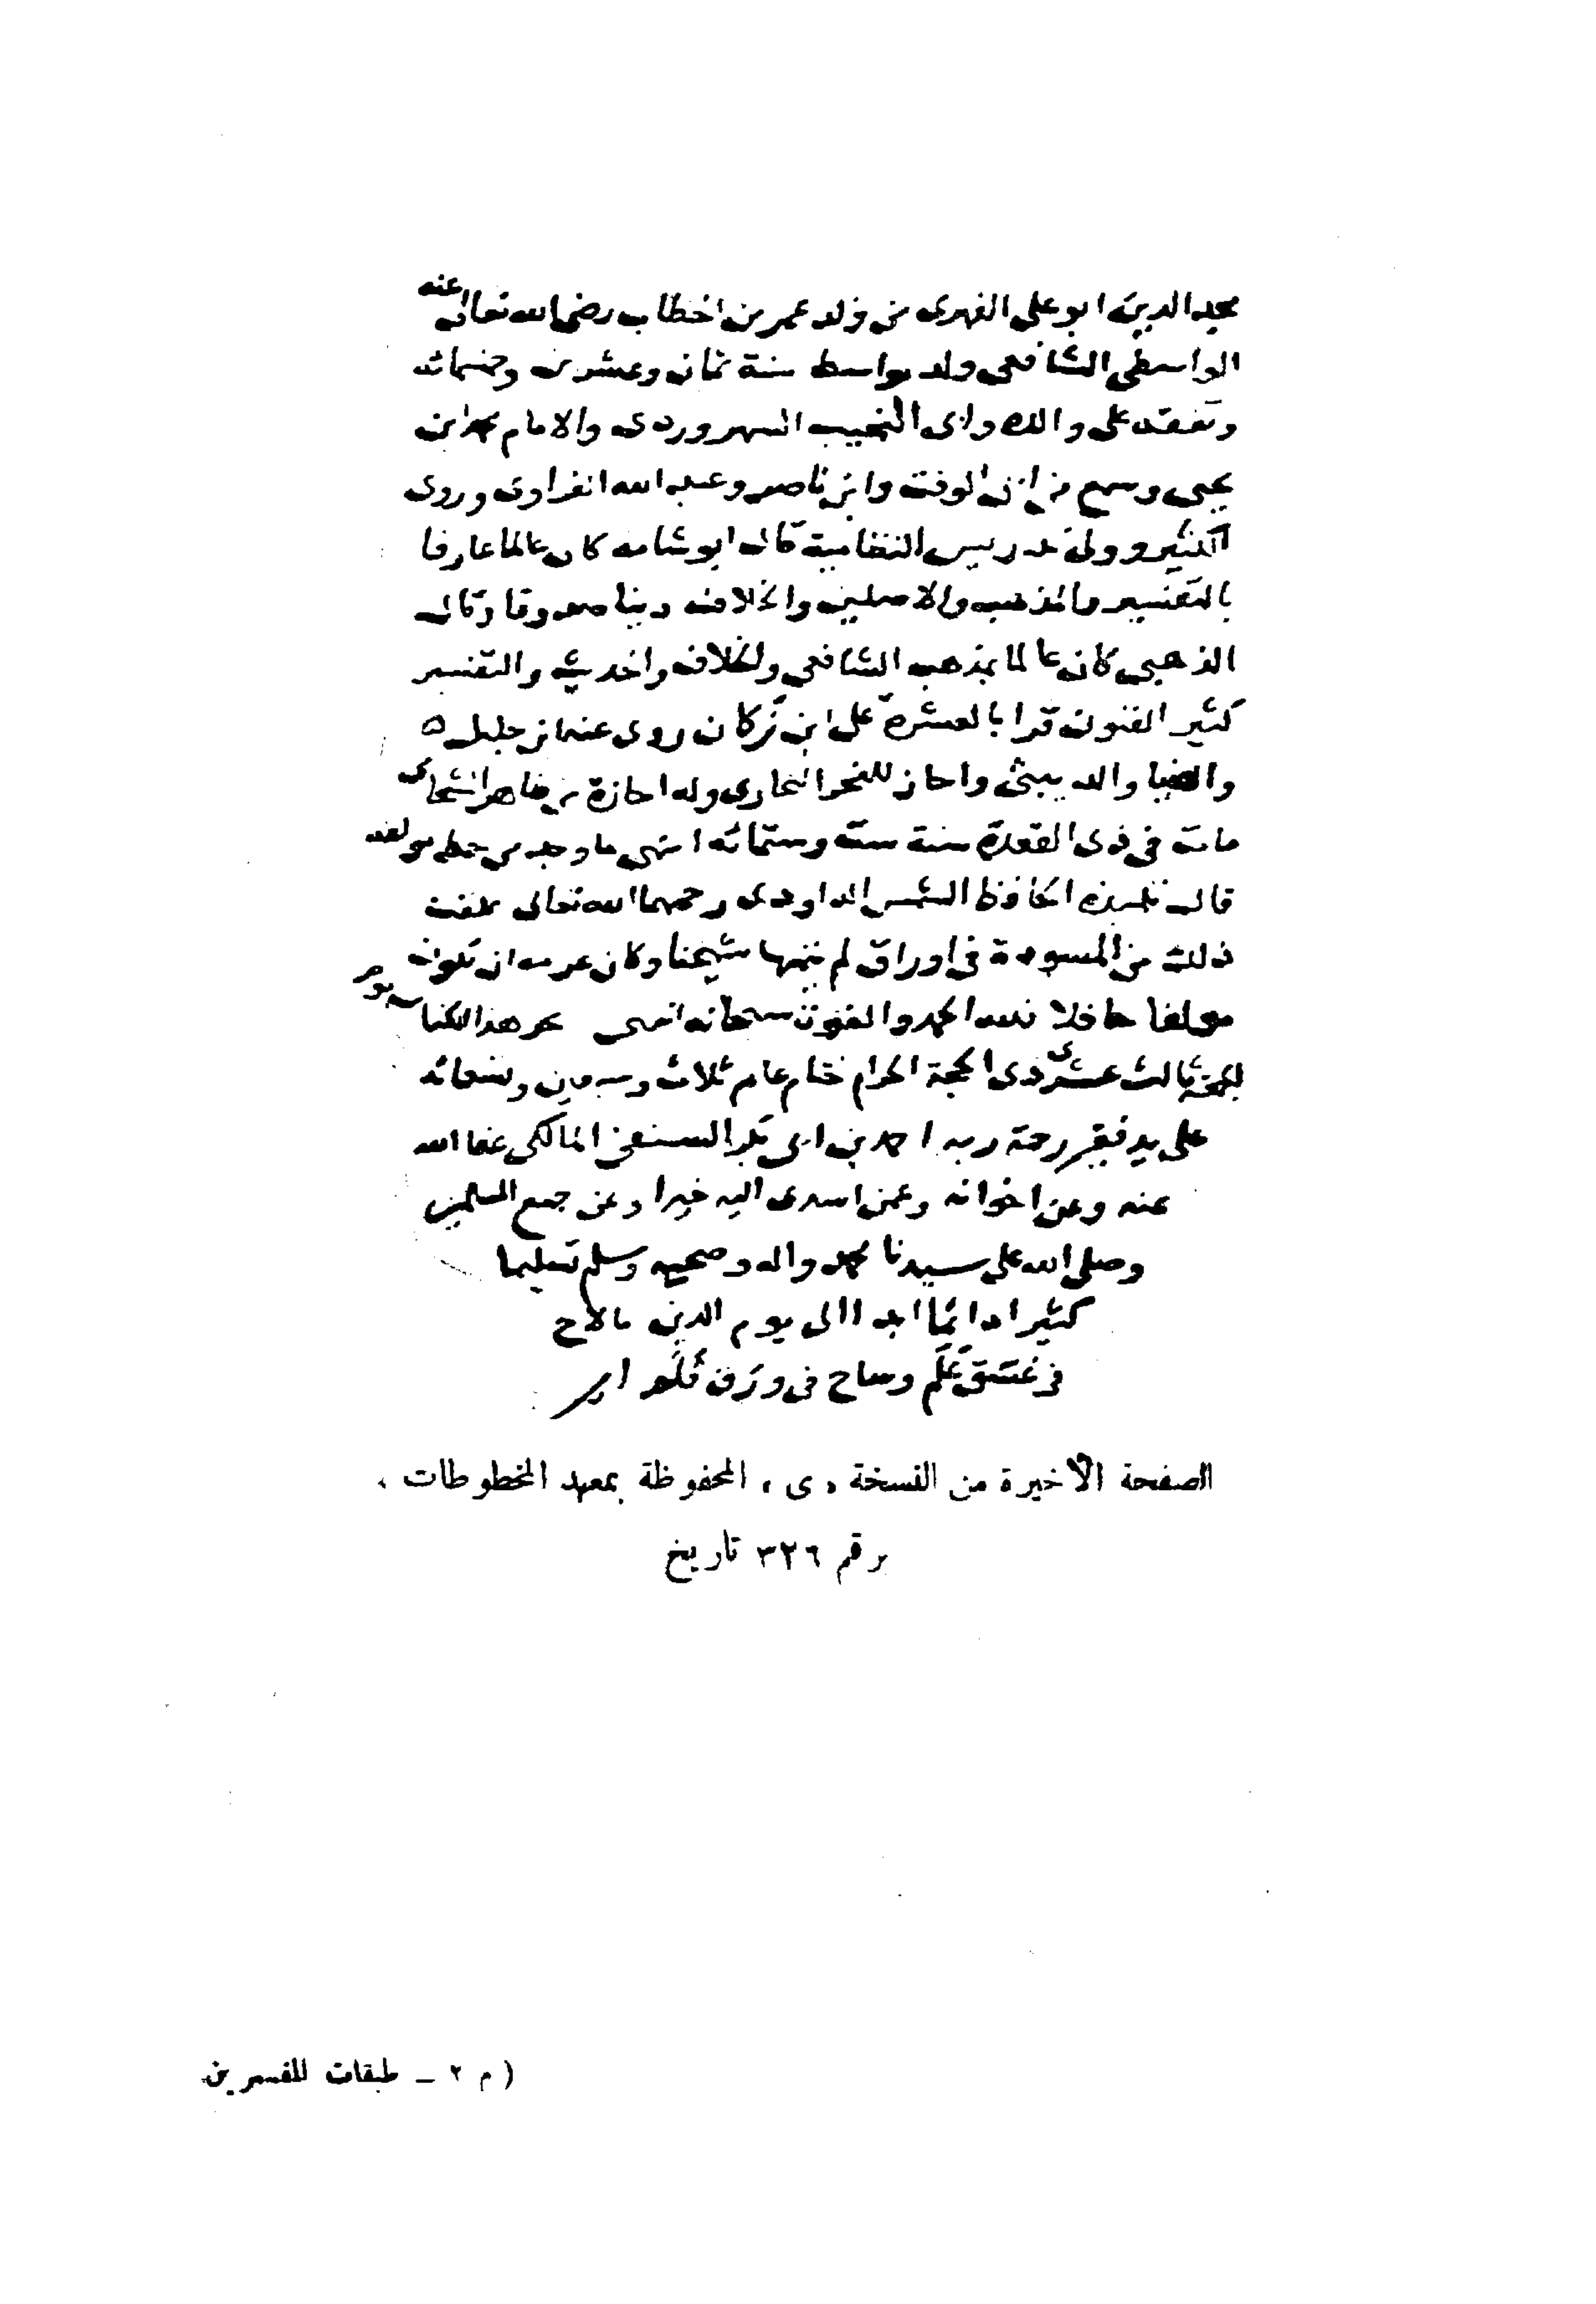 مجد الدين ابو على الفهرى من ولد عمر بن الخطاب رضى الله تعالى عنه
الواسطى الشافعى ولد بواسط سنة ثمان وعشرين وخمسمائه
وتفقه على والده وابى النجيب السهروردى والامام محمد ابن
يحيى وسمع من ابى الوقت وابن ناصر وعبد الله الفراوى وروى
الكثير وولى تدريس النظامية قال ابو شامه كان عالما عارفا
بالتفسير والمذهب والاصلين والخلاف دينا صدوقا وقال
الذهبى كان عالما بمذهب الشافعى والخلاف والحديث والتفسير
كثير الفنون قرا بالعشرة على ابن تركان روى عنه ابن خليل
والضيا والدبيثى واجاز للفخر البخارى وله اجازة من زاهر الشحامى
مات فى ذى القعدة سنة ست وستمائه انتهى ما وجد من خط مولفه
قال تلميذه الحافظ الشمس الداودى رحمهما الله تعالى علقت
ذلك من المسودة فى اوراق لم يتمها شيخنا وكان عزمه ان يكون
مولفا حافلا فلله الحمد والفوت سبحانه انتهى نحز هذا الكتاب يوم
الجمعة ثالث عشرى ذى الحجة الحرام ختام عام ثلاث وسبعين وتسعمائه
على يد فقير رحمة ربه احمد بن ابى بكر السنفى المالكى عفا الله
عنه وعن اخوانه وعمن اسدى اليه خيرا وعن جميع المسلمين
وصلى الله على سيدنا محمد واله وصحبه وسلم تسليما
كثيرا دائما ابدا الى يوم الدين مالاح
فى وساح فى ورق
الصفحة الأخيرة من النسخة « ى » المحفوظة بمعهد المخطوطات .
برقم ٣٢٦ تاريخ
( م ٢ – طبقات المفسرين